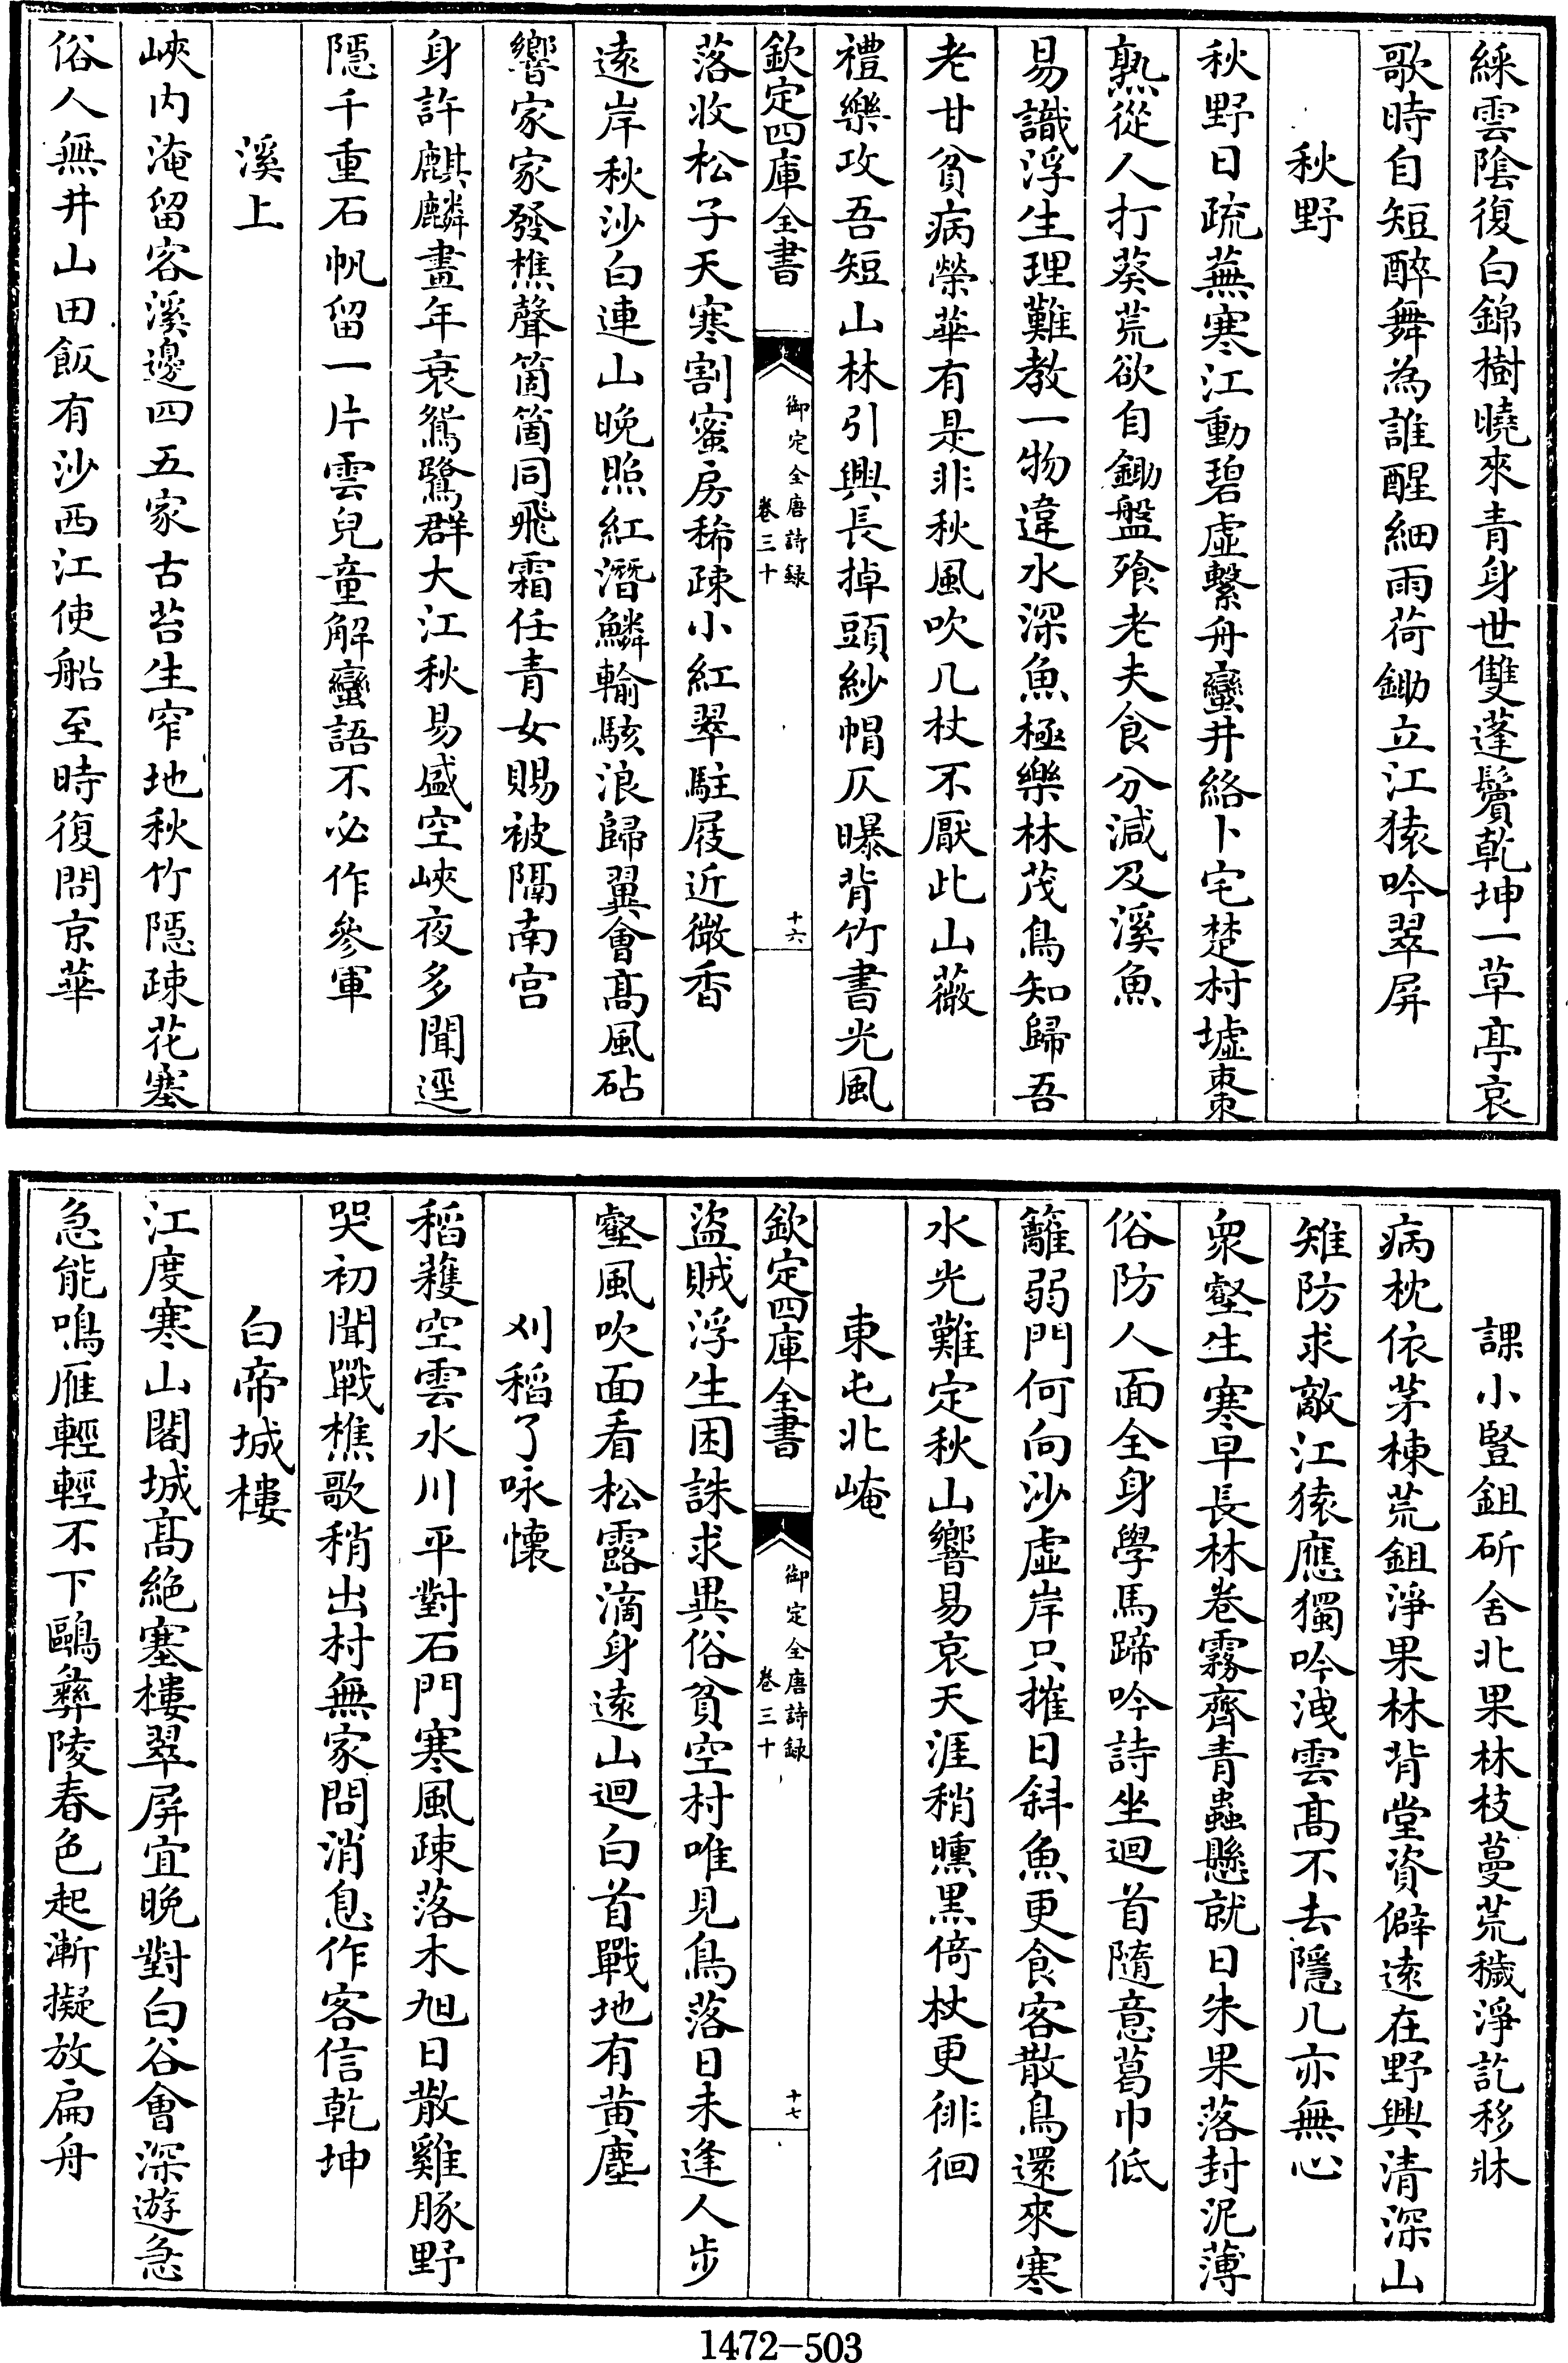 綵雲隂復白錦樹曉來青身世雙蓬鬢乾坤一草亭哀
歌時自短醉舞為誰醒細雨荷鋤立江猿吟翠屏
秋野
秋野日疏蕪寒江動碧虛繫舟蠻井絡卜宅楚村墟棗
熟從人打葵荒欲自鋤盤飱老夫食分減及溪魚
易識浮生理難教一物違水深魚極樂林茂鳥知歸吾
老甘貧病榮華有是非秋風吹几杖不厭此山薇
禮樂攻吾短山林引興長掉頭紗帽仄曝背竹書光風
欽定四庫全書
御定全唐詩録
卷三十
十六
落收松子天寒割蜜房稀疎小紅翠駐屐近微香
遠岸秋沙白連山晚照紅潛鱗輸駭浪歸翼會髙風砧
響家家發樵聲箇箇同飛霜任青女賜被隔南宫
身許麒麟畫年衰鴛鷺群大江秋易盛空峽夜多聞逕
隱千重石帆留一片雲兒童解蠻語不必作參軍
溪上
峽内淹留客溪邊四五家古苔生窄地秋竹隱疎花塞
俗人無井山田飯有沙西江使船至時復問京華
課小豎鉏斫舍北果林枝蔓荒穢淨訖移牀
病枕依茅棟荒鉏淨果林背堂資僻遠在野興清深山
雉防求敵江猿應獨吟洩雲髙不去隱几亦無心
衆壑生寒早長林卷霧齊青蟲懸就日朱果落封泥薄
俗防人面全身學馬蹄吟詩坐迴首隨意葛巾低
籬弱門何向沙虛岸只摧日斜魚更食客散鳥還來寒
水光難定秋山響易哀天涯稍曛黒倚杖更徘徊
東屯北崦
欽定四庫全書
御定全唐詩録
卷三十
十七
盜賊浮生困誅求異俗貧空村唯見鳥落日未逢人步
壑風吹面看松露滴身遠山迴白首戰地有黄塵
刈稻了咏懷
稻穫空雲水川平對石門寒風疎落木旭日散雞豚野
哭初聞戰樵歌稍出村無家問消息作客信乾坤
白帝城樓
江度寒山閣城髙絶塞樓翠屏宜晩對白谷會深遊急
急能鳴雁輕輕不下鷗彝陵春色起漸擬放扁舟
1472-503